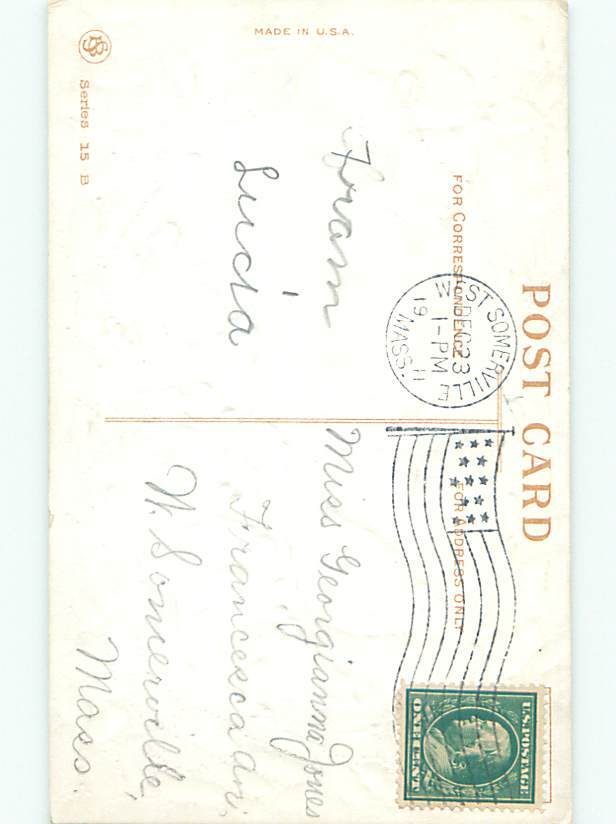 MADE IN U.S.A.
POST CARD
FOR CORRESPONDENCE
FOR ADDRESS ONLY
WEST SOMERVILLE
DEC 23
1-PM
19 11
MASS.
U.S. POSTAGE
ONE CENT
From
Lucia
Miss Georgianna Jones
Francesca Av.
W. Somerville,
Mass.
Series 15 B